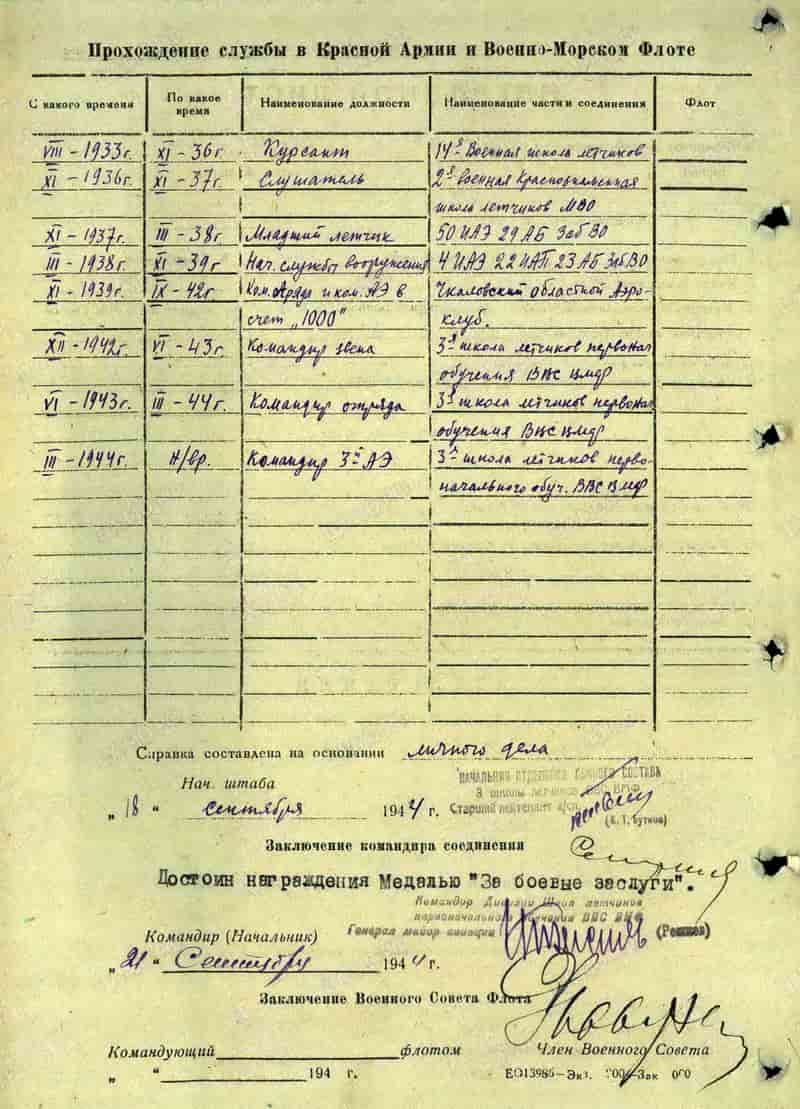 Прохождение службы в Красной Армии и Военно-Морском Флоте
С какого времени
По какое время
Наименование должности
Наименование части и соединения
Флот
VIII - 1933г. XI - 36г. Курсант 14я Военная школа летчиков
XI - 1936г. XI - 37г. Слушатель 2я военная Краснознаменная
школа летчиков МВО
XI - 1937г. III - 38г Младший летчик 50 ИАЭ 29 АБ ЗабВО
III - 1938г. XI - 39г Нач. службы вооружения 4 ИАЭ 22 ИАП 23 АБ ЗабВО
XI - 1939г. IX - 42г Ком. отряда и ком. АЭ в Чкаловский областной Аэро-
счет „1000" клуб.
XII - 1942г. VI - 43г. Командир звена 3я школа летчиков первонач
обучения ВВС ВМФ
VI - 1943г. III - 44г. Командир отряда 3я школа летчиков первонач
обучения ВВС ВМФ
III - 1944г. н/вр. Командир 3й АЭ 3я школа летчиков перво-
начального обуч. ВВС ВМФ
Справка составлена на основании личного дела
Нач. штаба
НАЧАЛЬНИК ОТДЕЛЕНИЯ СОСТАВА
3 школы летчиков ВМФ
Старший лейтенант
„18" сентября 1944 г.
(Бутков)
Заключение командира соединения
Достоин награждения Медалью "За боевые заслуги".
Командир Дивизии Школ летчиков
первоначального обучения ВВС ВМФ
Генерал майор авиации
Командир (Начальник)
„21" Сентября 1944 г.
Заключение Военного Совета Флота
Командующий флотом Член Военного Совета
„ " 194 г.